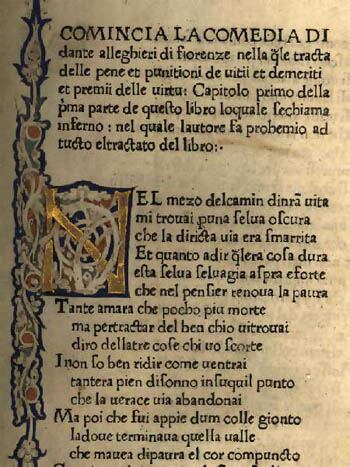 COMINCIA LA COMEDIA DI
dante alleghieri di fiorenze nella q̃le tracta
delle pene et punitioni de uitii et demeriti
et premii delle uirtu: Capitolo primo della
p̃ma parte de questo libro loquale sechiama
inferno: nel quale lautore fa prohemio ad
tucto eltractato del libro:·
NEL mezo delcamin dinr̃a uita
mi trouai puna selua oscura
che la diricta uia era smarrita
Et quanto adir q̃lera cosa dura
esta selua seluagia aspra eforte
che nel pensier renoua la paura
Tante amara che pocho piu morte
ma pertractar del ben chio uitrouai
diro dellatre cose chi uo scorte
I non so ben ridir come uentrai
tantera pien disonno insuquil punto
che la uerace uia abandonai
Ma poi che fui appie dum colle gionto
ladoue terminaua quella ualle
che mauea dipaura el cor compuncto